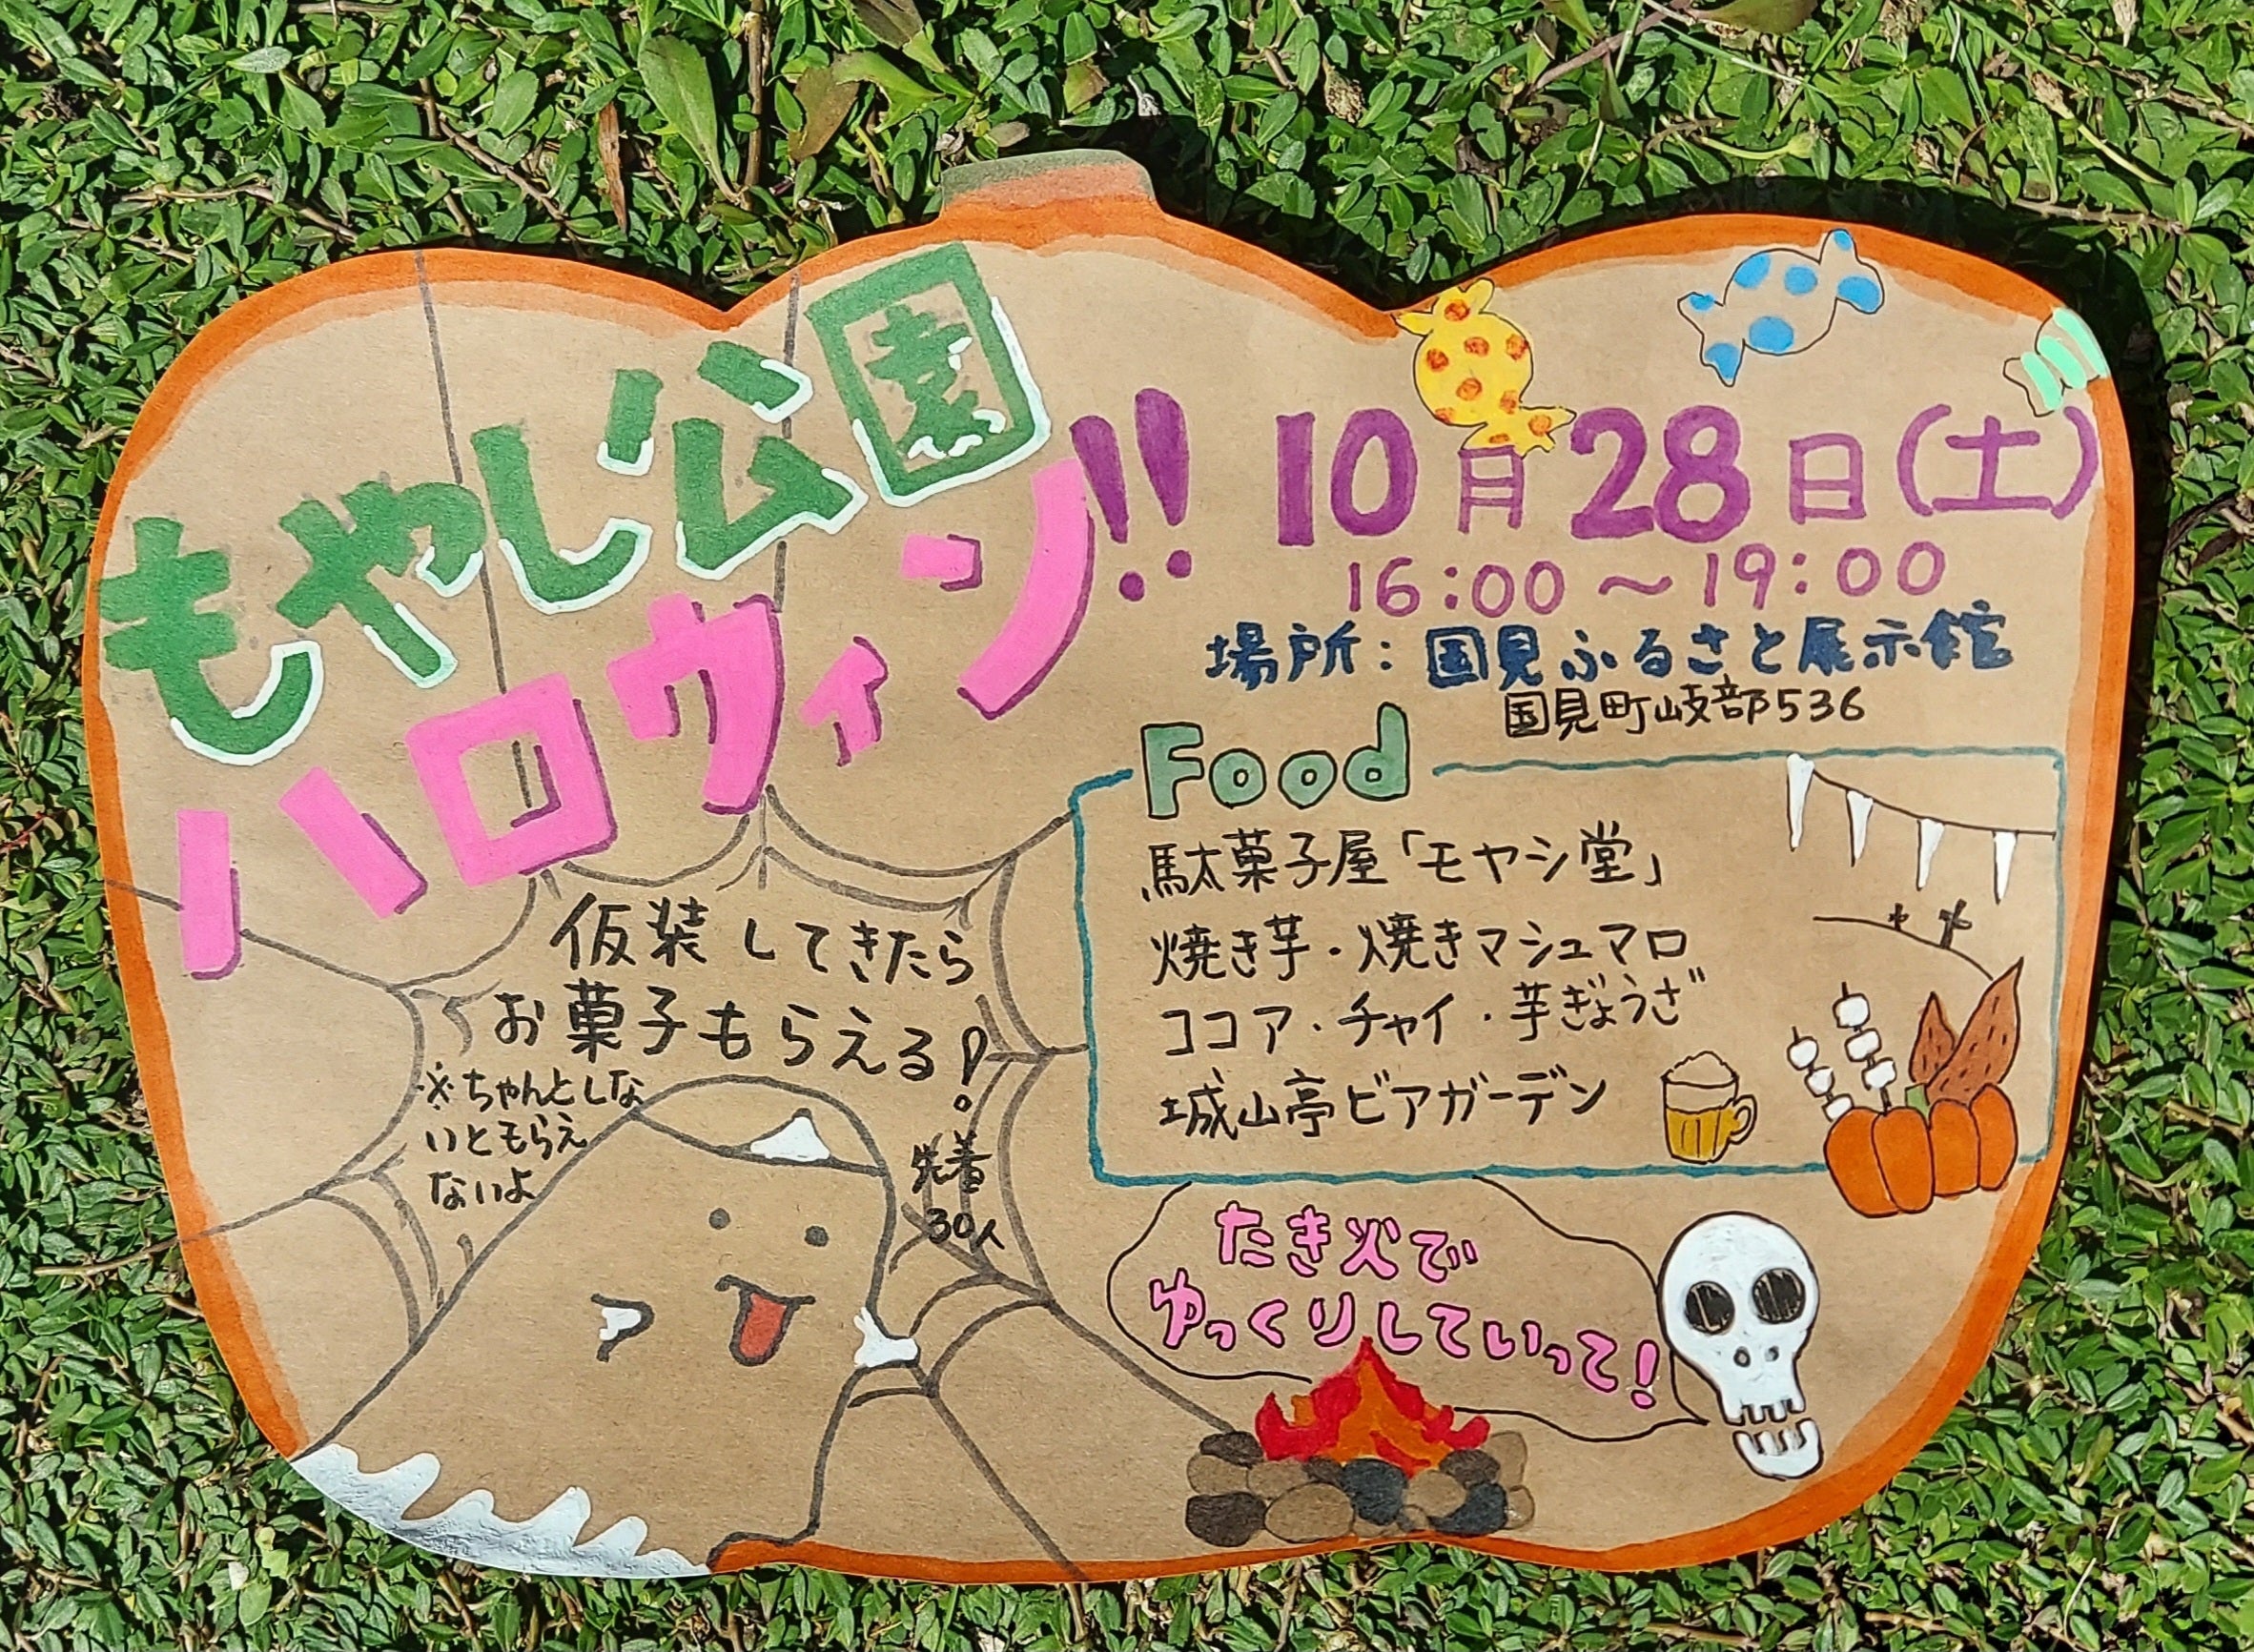 もやし公園
ハロウィン!!
10月28日(土)
16:00～19:00
場所:国見ふるさと展示館
国見町岐部536
Food
駄菓子屋「モヤシ堂」
焼き芋・焼きマシュマロ
ココア・チャイ・芋ぎょうざ
城山亭ビアガーデン
仮装してきたら
お菓子もらえる!
※ちゃんとしな
いともらえ
ないよ
先着
30人
たき火で
ゆっくりしていって!